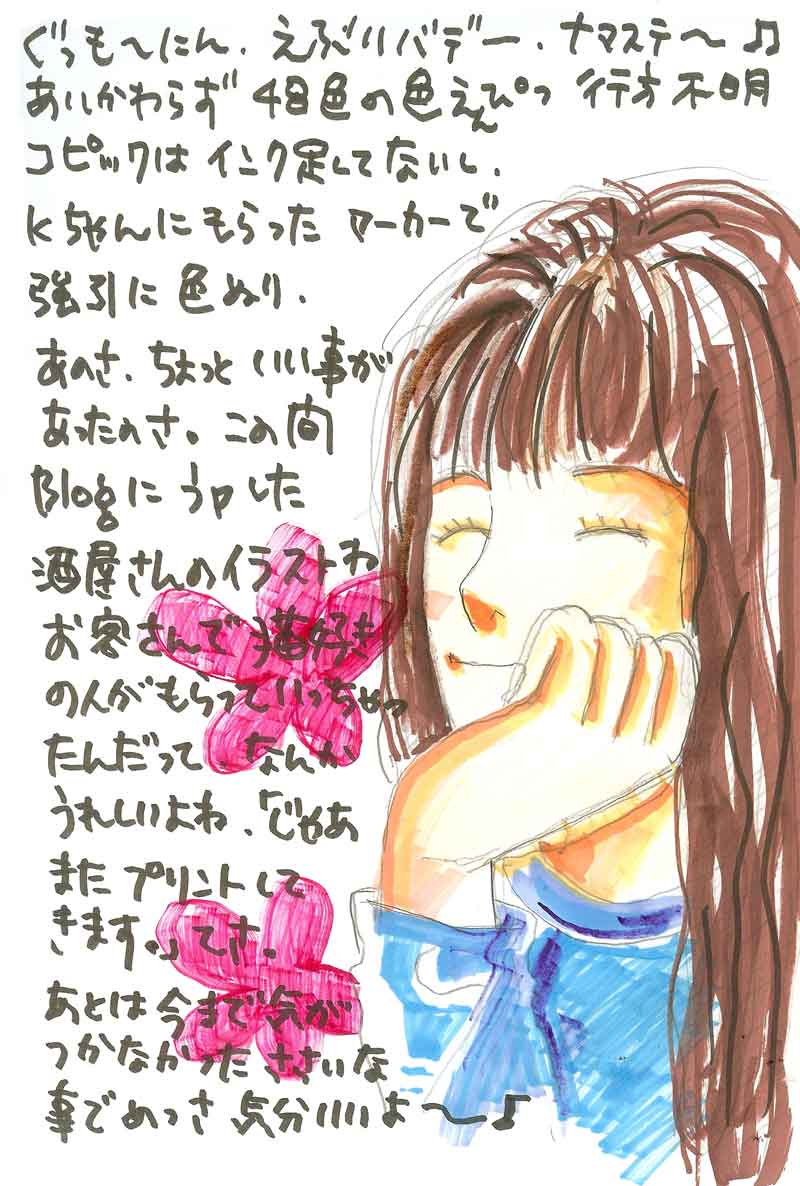 ぐっも〜にん、えぶりバデー、ナマステ〜♫
あいかわらず 48色の色えんぴつ 行方不明
コピックは インク足してないし、
Kちゃんにもらった マーカーで
強引に 色ぬり、
あのさ、ちょっと いい事が
あったのさ。この間
Blogに うpした
酒屋さんのイラストね
お客さんで 猫好き
の人が もらっていっちゃっ
たんだって、なんか
うれしいよね、「じゃあ
また プリントして
きます。」てさ。
あとは 今まで 気が
つかなかった ささいな
事で めっさ 気分いいよ〜♪